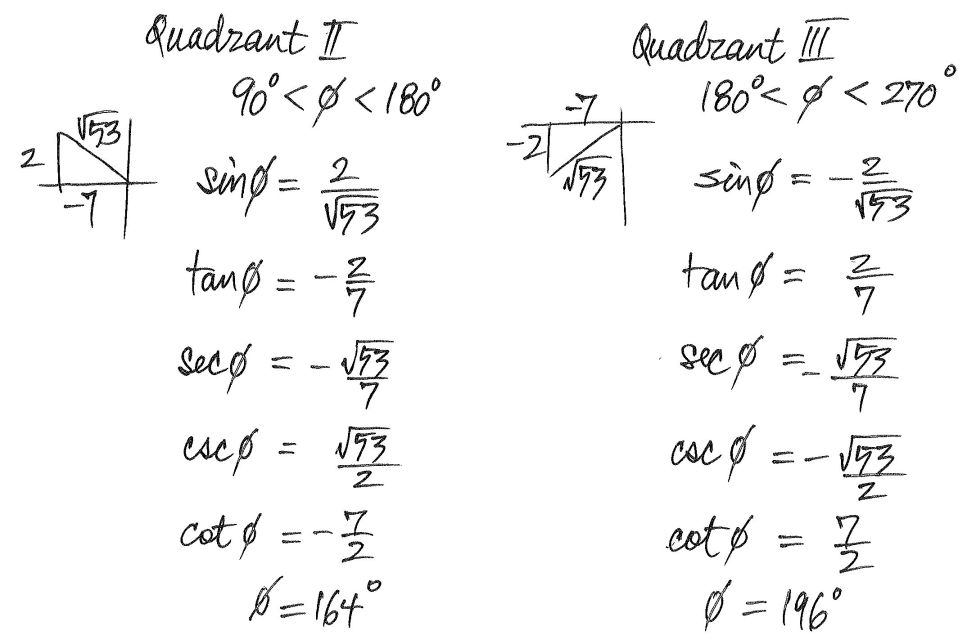 Quadrant II
90° < ø < 180°
√53
2
-7
sinø = 2/√53
tanø = -2/7
secø = -√53/7
cscø = √53/2
cotø = -7/2
ø = 164°
Quadrant III
180° < ø < 270°
-7
-2
√53
sinø = -2/√53
tanø = 2/7
secø = -√53/7
cscø = -√53/2
cotø = 7/2
ø = 196°